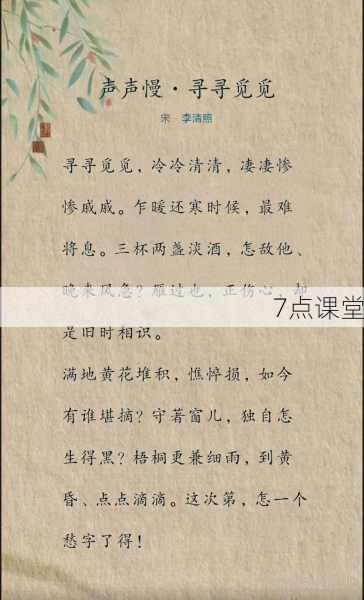 声声慢·寻寻觅觅
宋 李清照
寻寻觅觅，冷冷清清，凄凄惨
惨戚戚。乍暖还寒时候，最难
将息。三杯两盏淡酒，怎敌他、
晚来风急？雁过也，正伤心，却
7点课堂
是旧时相识。
满地黄花堆积，憔悴损，如今
有谁堪摘？守著窗儿，独自怎
生得黑？梧桐更兼细雨，到黄
昏、点点滴滴。这次第，怎一个
愁字了得！